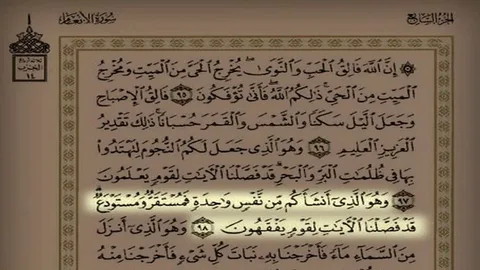 سُورَةُ الأَنْعَامِ
الجُزْءُ السَّابِعُ
إِنَّ ٱللَّهَ فَالِقُ ٱلْحَبِّ وَٱلنَّوَىٰ يُخْرِجُ ٱلْحَيَّ مِنَ ٱلْمَيِّتِ وَمُخْرِجُ
ٱلْمَيِّتِ مِنَ ٱلْحَيِّ ذَٰلِكُمُ ٱللَّهُ فَأَنَّىٰ تُؤْفَكُونَ ٩٥ فَالِقُ ٱلْإِصْبَاحِ
وَجَعَلَ ٱلَّيْلَ سَكَنًا وَٱلشَّمْسَ وَٱلْقَمَرَ حُسْبَانًا ذَٰلِكَ تَقْدِيرُ
ٱلْعَزِيزِ ٱلْعَلِيمِ ٩٦ وَهُوَ ٱلَّذِي جَعَلَ لَكُمُ ٱلنُّجُومَ لِتَهْتَدُوا۟
بِهَا فِي ظُلُمَٰتِ ٱلْبَرِّ وَٱلْبَحْرِ قَدْ فَصَّلْنَا ٱلْءَايَٰتِ لِقَوْمٍ يَعْلَمُونَ
٩٧ وَهُوَ ٱلَّذِي أَنشَأَكُم مِّن نَّفْسٍ وَٰحِدَةٍ فَمُسْتَقَرٌّ وَمُسْتَوْدَعٌ
قَدْ فَصَّلْنَا ٱلْءَايَٰتِ لِقَوْمٍ يَفْقَهُونَ ٩٨ وَهُوَ ٱلَّذِي أَنزَلَ
مِنَ ٱلسَّمَاءِ مَاءً فَأَخْرَجْنَا بِهِ نَبَاتَ كُلِّ شَيْءٍ فَأَخْرَجْنَا مِنْهُ